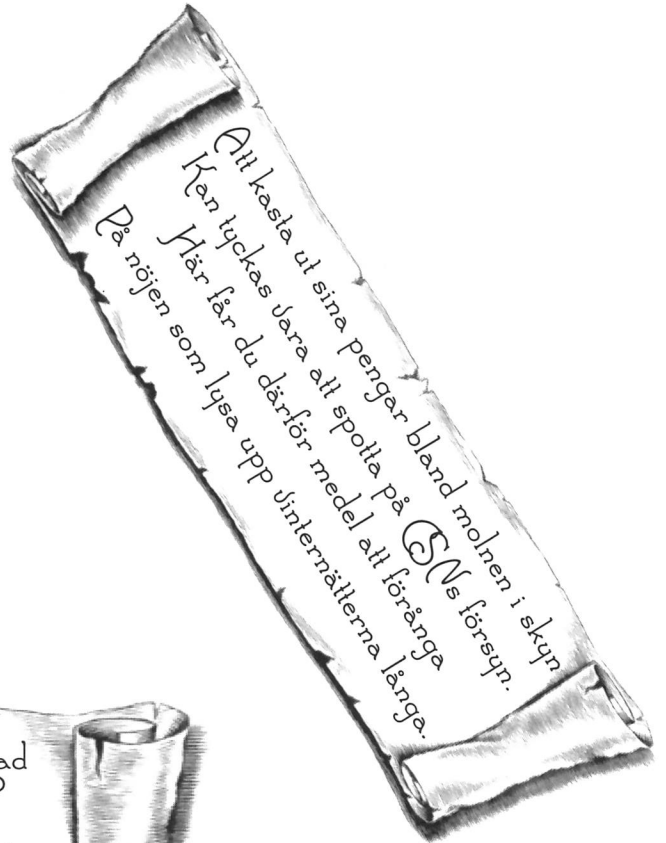 Att kasta ut sina pengar bland molnen i skyn
Kan tyckas vara att spotta på CSNs försyn.
Här får du därför medel att förånga
På nöjen som lysa upp vinternätterna långa.
ad